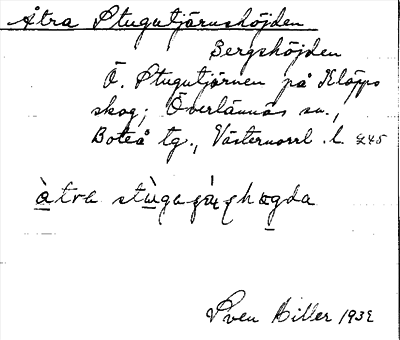 Åtra Stugutjärnshöjden
Bergshöjden
Ö. Stugutjärnen på Kläpps
skog; Överlännäs sn.,
Boteå tg., Västernorrl. l.
àtra
Sven Hiller 1932